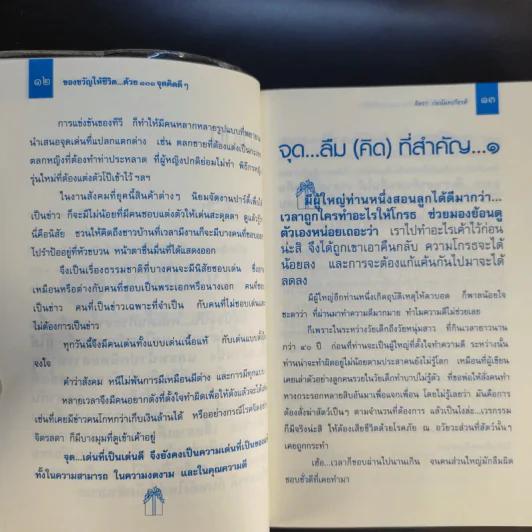 ๑๒
ของขวัญให้ชีวิต...ด้วย ๑๐๑ จุดคิดดี ๆ
การแข่งขันของทีวี ก็ทำให้มีคนหลากหลายรูปแบบที่
นำเสนอจุดเด่นที่แปลกแตกต่าง เช่น ตลกชายที่ต้องแต่งเป็น
ตลกหญิงที่ต้องทำท่าประหลาด ที่ผู้หญิงปกติย่อมไม่ทำ พิธีกรหญิง
รุ่นใหม่ที่ต้องแต่งตัวโป๊เข้าไว้ ฯลฯ
ในงานสังคมที่ยุคนี้สินค้าต่างๆ นิยมจัดงานปาร์ตี้เพื่อให้
เป็นข่าว ก็จะมีไม่น้อยที่มีคนชอบแต่งตัวให้เด่นสะดุดตา ดูแล้วรู้
นี่คือนิสัย ชวนให้คิดถึงชาวบ้านที่เวลามีงานก็จะมีบางคนที่ชอบออก
ไปรำป้ออยู่ที่หัวขบวน หน้าตาชื่นมื่นที่ได้แสดงออก
จึงเป็นเรื่องธรรมชาติที่บางคนจะมีนิสัยชอบเด่น ซึ่ง
เหมือนหรือต่างกับคนที่ชอบเป็นพระเอกหรือนางเอก คนที่ชอบ
เป็นข่าว คนที่เป็นข่าวเฉพาะที่จำเป็น กับคนที่ไม่ชอบเด่นและ
ไม่ต้องการเป็นข่าว
ทุกวันนี้จึงมีคนเด่นทั้งแบบเด่นเนื้อแท้ กับเด่นแบบตั้งใจ
จงใจ
คำว่าสังคม หนีไม่พ้นการมีเหมือนมีต่าง และการมีทุกแบบ
หลายเวลาจึงมีคนอยากดังที่ตั้งใจทำผิดเพื่อให้ดังแล้วจะได้
เช่นที่เคยมีข่าวคนโกหกว่าเก็บเงินล้านได้ หรืออย่างกรณีโรค
จิตรลดา ก็มีบางมุมที่ดูเข้าเค้าอยู่
จุด...เด่นที่เป็นเด่นดี จึงยังคงเป็นความเด่นที่เป็นของ
ทั้งในความสามารถ ในความงดงาม และในคุณความดี
๑๓
จุด...ลืม (คิด) ที่สำคัญ...๑
มีผู้ใหญ่ท่านหนึ่งสอนลูกได้ดีมากว่า...
เวลาถูกใครทำอะไรให้โกรธ ช่วยมองย้อนดู
ตัวเองหน่อยเถอะว่า เราไปทำอะไรเค้าไว้ก่อน
น่ะสิ จึงได้ถูกเขาเอาคืนกลับ ความโกรธจะได้
น้อยลง และการจะต้องแก้แค้นกันไปมาจะได้
ลดลง
มีผู้ใหญ่อีกท่านหนึ่งเกิดอุบัติเหตุให้ตาบอด ก็พาลน้อยใจ
ชะตาว่า ที่ผ่านมาทำความดีมากมาย ทำไมความดีไม่ช่วยเลย
ก็เพราะในระหว่างวัยเด็กถึงวัยหนุ่มสาว ที่กินเวลายาวนาน
กว่า ๔๐ ปี ก่อนที่ท่านจะเป็นผู้ใหญ่ที่ตั้งใจทำความดี ระหว่างนั้น
ท่านน่าจะทำผิดอยู่ไม่น้อยตามประสาคนยังไม่รู้โลก เหมือนที่ผู้เขียน
เคยเล่าตัวอย่างลูกคนรวยในวัยเด็กทำบาปไม่รู้ตัว ที่ขอพ่อให้สั่งคนทำ
ทางกระรอกหลายสิบอันมาเพื่อแจกเพื่อน โดยไม่รู้เลยว่า มันคือการ
ต้องสั่งฆ่าสัตว์เป็นๆ ตามจำนวนที่ต้องการ แล้วเป็นไงล่ะ...เวรกรรม
ก็มีจริงน่ะสิ ให้ต้องเสียชีวิตด้วยโรคภัย ณ อวัยวะส่วนที่สัตว์นั้นๆ
เคยถูกกระทำ
เฮ้อ...เวลาก็ชอบผ่านไปนานเกิน จนคนส่วนใหญ่มักลืมผิด
ชอบชั่วดีที่เคยทำมา